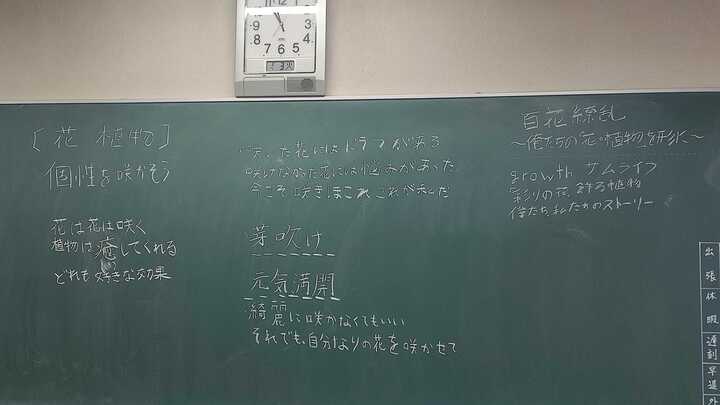 [花 植物]
個性を咲かそう
花は花は咲く
植物は癒してくれる
どれも好きな効果
咲いた花にはドラマがある
咲けなかった花には悩みがあった
今こそ咲き、まこれ これが私だ
芽吹け
元気満開
綺麗に咲かなくてもいい
それでも、自分なりの花を咲かせて
百花繚乱
〜俺たちの花・植物を形に〜
growth サムライフ
彩りの花、飾る植物
俺たち、私たちのストーリー
12
11
8
9
7
6
5
4
3
出張
休暇
遅刻
早退
外